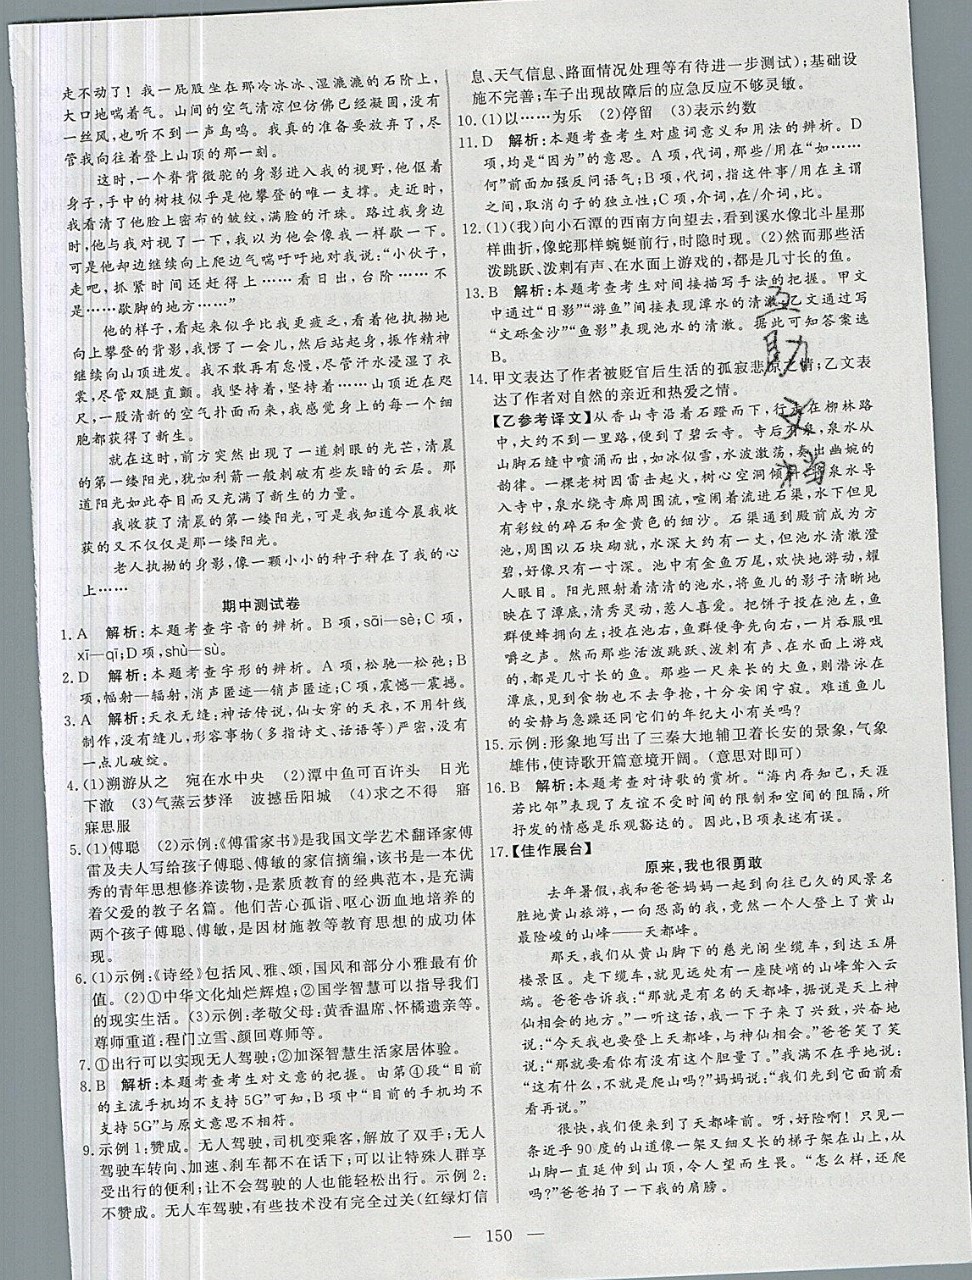 走不动了！我一屁股坐在那冷冰冰、湿漉漉的石阶上，
大口地喘着气。山间的空气清凉但仿佛已经凝固，没有
一丝风，也听不到一声鸟鸣。我真的准备要放弃了，尽
管我向往着登上山顶的那一刻。
这时，一个脊背微驼的身影进入我的视野，他伛着
身子，手中的树枝似乎是他攀登的唯一支撑。走近时，
我看清了他脸上密布的皱纹，满脸的汗珠。路过我身边
时，他与我对视了一下，我以为他会像我一样歇一下。
可是他却边继续向上爬边气喘吁吁地对我说：“小伙子，
走吧，抓紧时间还赶得上……看日出，台阶……不
是……歇脚的地方……”
他的样子，看起来似乎比我更疲乏，看着他执拗地
向上攀登的背影，我愣了一会儿，然后站起身，振作精神
继续向山顶进发。我不敢再有怠慢，尽管汗水浸湿了衣
裳，尽管双腿直颤。我坚持着，坚持着……山顶近在咫
尺，一股清新的空气扑面而来，我感觉身上的每一个细
胞都获得了新生。
就在这时，前方突然出现了一道刺眼的光芒，清晨
的第一缕阳光，犹如利箭一般刺破有些灰暗的云层。那
道阳光如此夺目而又充满了新生的力量。
我收获了清晨的第一缕阳光，可是我知道今晨我收
获的又不仅仅是那一缕阳光。
老人执拗的身影，像一颗小小的种子种在了我的心
上……
期中测试卷
1. A　解析：本题考查字音的辨析。B项，sāi—sè；C项，
xī—qī；D项，shù—sù。
2. D　解析：本题考查字形的辨析。A项，松驰—松弛；B
项，幅射—辐射，消声匿迹—销声匿迹；C项，震憾—震撼。
3. A　解析：天衣无缝：神话传说，仙女穿的天衣，不用针线
制作，没有缝儿，形容事物（多指诗文、话语等）严密，没有
一点儿破绽。
4. (1)溯游从之　宛在水中央　(2)潭中鱼可百许头　日光
下澈　(3)气蒸云梦泽　波撼岳阳城　(4)求之不得　寤
寐思服
5. (1)傅聪　(2)示例：《傅雷家书》是我国文学艺术翻译家傅
雷及夫人写给孩子傅聪、傅敏的家信摘编，该书是一本优
秀的青年思想修养读物，是素质教育的经典范本，是充满
着父爱的教子名篇。他们苦心孤诣、呕心沥血地培养的
两个孩子傅聪、傅敏，是因材施教等教育思想的成功体
现。
6. (1)示例：《诗经》包括风、雅、颂，国风和部分小雅最有价
值。(2)①中华文化灿烂辉煌；②国学智慧可以指导我们
的现实生活。(3)示例：孝敬父母：黄香温席、怀橘遗亲等。
尊师重道：程门立雪、颜回尊师等。
7. ①出行可以实现无人驾驶；②加深智慧生活家居体验。
8. B　解析：本题考查考生对文意的把握。由第④段“目前
的主流手机均不支持5G”可知，B项中“目前的手机均不
支持5G”与原文意思不相符。
9. 示例1：赞成。无人驾驶，司机变乘客，解放了双手；无人
驾驶车转向、加速、刹车都不在话下；可以让特殊人群享
受出行的便利；让不会驾驶的人也能轻松出行。示例2：
不赞成。无人车驾驶，有些技术没有完全过关（红绿灯信
息、天气信息、路面情况处理等有待进一步测试）；基础设
施不完善；车子出现故障后的应急反应不够灵敏。
10. (1)以……为乐　(2)停留　(3)表示约数
11. D　解析：本题考查考生对虚词意义和用法的辨析。D
项，均是“因为”的意思。A项，代词，那些/用在“如……
何”前面加强反问语气；B项，代词，指这件事/用在主谓
之间，取消句子的独立性；C项，介词，在/介词，比。
12. (1)（我）向小石潭的西南方向望去，看到溪水像北斗星那
样曲折，像蛇那样蜿蜒前行，时隐时现。(2)然而那些活
泼跳跃、泼剌有声、在水面上游戏的，都是几寸长的鱼。
13. B　解析：本题考查考生对间接描写手法的把握。甲文
中通过“日影”“游鱼”间接表现潭水的清澈，乙文通过写
“文砾金沙”“鱼影”表现池水的清澈。据此可知答案选
B。
14. 甲文表达了作者被贬官后生活的孤寂悲凉之情；乙文表
达了作者对自然的亲近和热爱之情。
【乙参考译文】从香山寺沿着石磴而下，行走在柳林路
中，大约不到一里路，便到了碧云寺。寺后有泉，泉水从
山脚石缝中喷涌而出，如冰似雪，水波激荡，奏出幽婉的
韵律。一棵老树因雷击起火，树心空洞倾斜，泉水导
入寺中，泉水绕寺廊周围流，喧闹着流进石渠，水下可以见
有彩纹的碎石和金黄色的细沙。石渠通到殿前成为方
池，周围以石块砌就，水深大约有一丈，但池水清澈澄
碧，好像只有一寸深。池中有金鱼万尾，欢快地游动，耀
人眼目。阳光照射着清清的池水，将鱼儿的影子清晰地
映在了潭底，清秀灵动，惹人喜爱。把饼子投在池左，鱼
群便蜂拥向左；投在池右，鱼群便争先向右，一片吞服咀
嚼之声。然而那些活泼跳跃、泼剌有声、在水面上游戏
的，都是几寸长的鱼。那些一尺来长的大鱼，则潜泳在
潭底，见到食物也不去争抢，十分安闲宁寂。难道鱼儿
的安静与急躁还同它们的年纪大小有关吗？
15. 示例：形象地写出了三秦大地辅卫着长安的景象，气象
雄伟，使诗歌开篇意境开阔。（意思对即可）
16. B　解析：本题考查对诗歌的赏析。“海内存知己，天涯
若比邻”表现了友谊不受时间的限制和空间的阻隔，所
抒发的情感是乐观豁达的。因此，B项表述有误。
17.【佳作展台】
原来，我也很勇敢
去年暑假，我和爸爸妈妈一起到向往已久的风景名
胜地黄山旅游，一向恐高的我，竟然一个人登上了黄山
最险峻的山峰——天都峰。
那天，我们从黄山脚下的慈光阁坐缆车，到达玉屏
楼景区。走下缆车，就见远处有一座陡峭的山峰耸入云
端。爸爸告诉我：“那就是有名的天都峰，据说是天上神
仙相会的地方。”一听这话，我一下子来了兴致，兴奋地
说：“今天我也要登上天都峰，与神仙相会。”爸爸笑了笑
说：“那就要看你有没有这个胆量了。”我满不在乎地说：
“这有什么，不就是爬山吗？”妈妈说：“我们先到它面前看
看再说。”
很快，我们便来到了天都峰前。呀，好险啊！只见一
条近乎90度的山道像一架又细又长的梯子架在山上，从
山脚一直延伸到山顶，令人望而生畏。“怎么样，还爬
吗？”爸爸拍了一下我的肩膀。
— 150 —